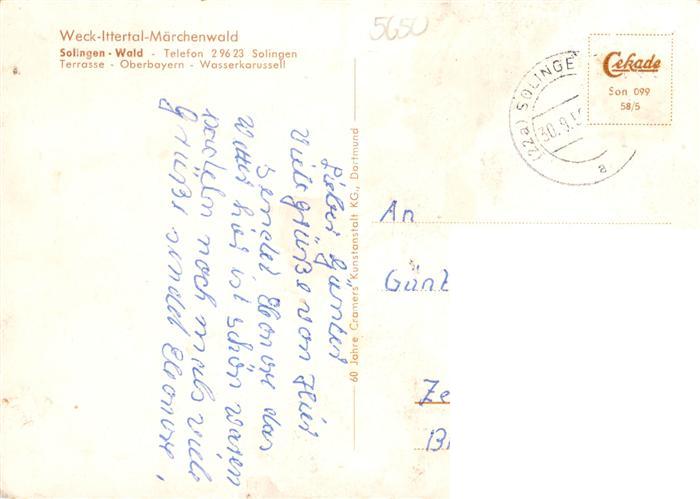 Weck-Ittertal-Märchenwald
Solingen-Wald - Telefon 29623 Solingen
Terrasse - Oberbayern - Wasserkarussell
5650
Cekade
Son 099
58/5
(22a) SOLINGE
30.9.5
a
60 Jahre Cramers Kunstanstalt KG., Dortmund
Lieber Günter
Viele grüße von hier
sendet Eleonore das
Wetter hier ist schön waren
nochmals viele
Grüße sendet Eleonore,
An
Günt
Ze
B